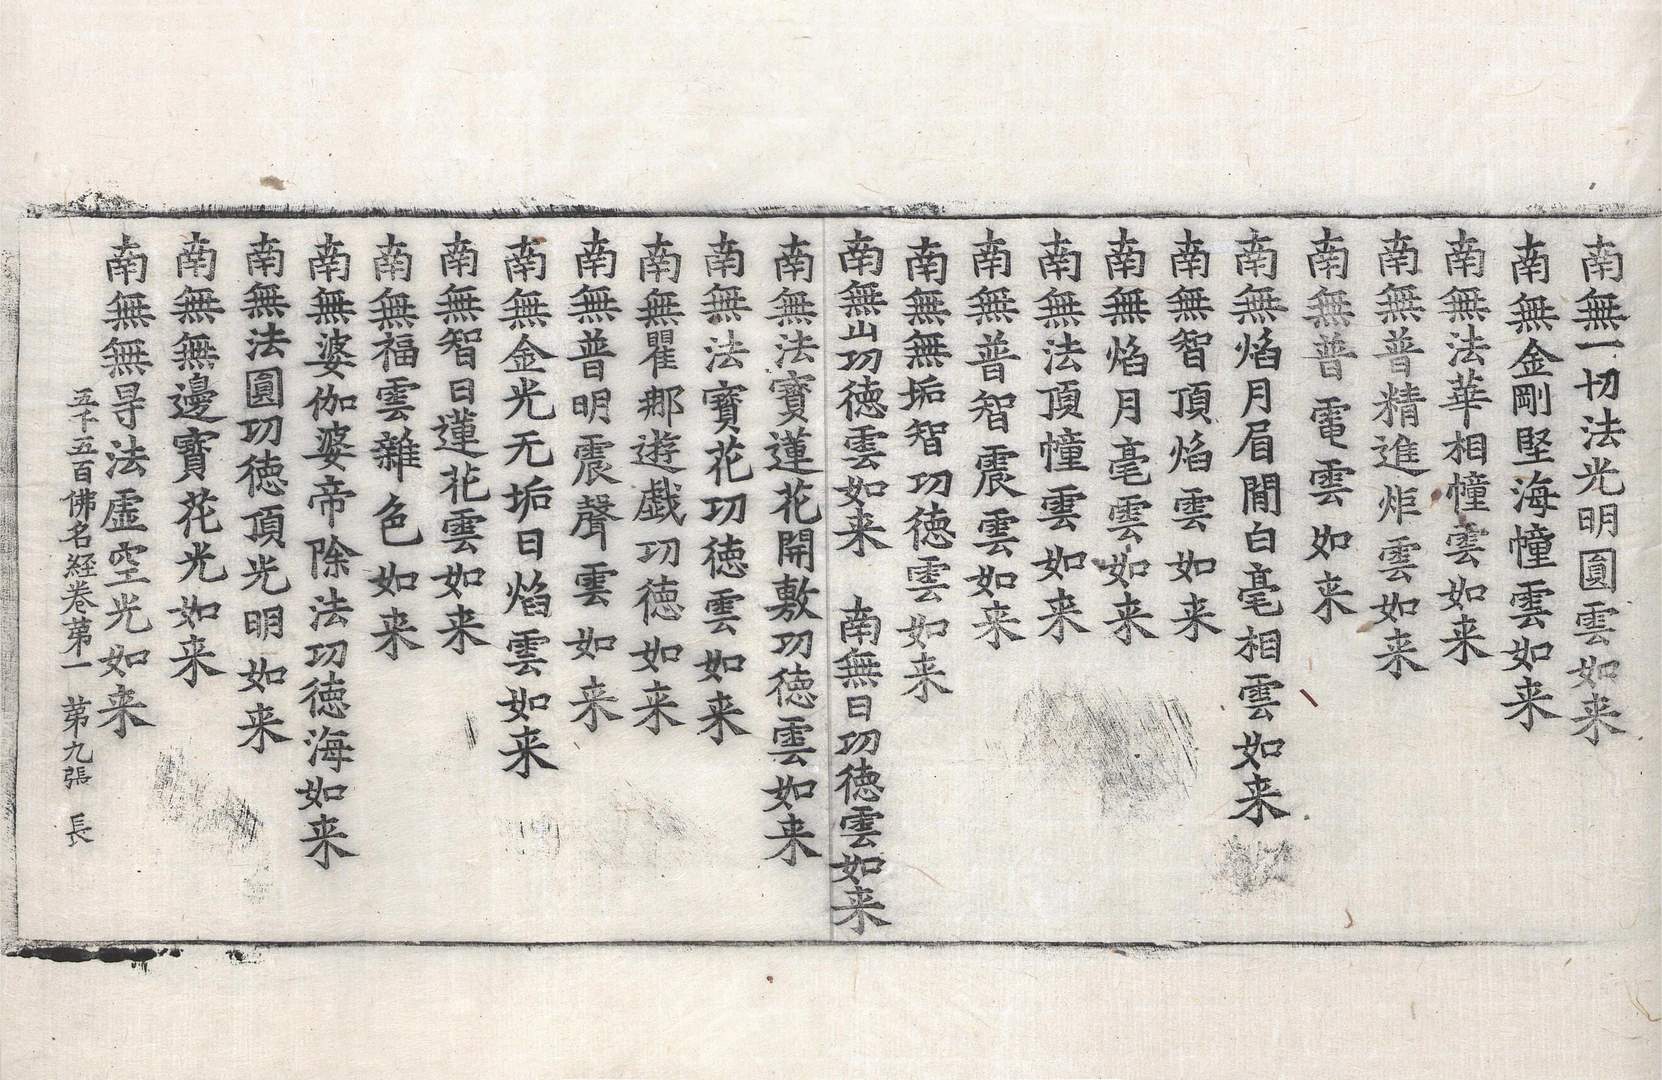 南無一切法光明圓雲如来
南無金剛堅海幢雲如来
南無法華相幢雲如来
南無普精進炬雲如来
南無普電雲如来
南無焰月眉間白毫相雲如来
南無智頂焰雲如来
南無焰月毫雲如来
南無法頂幢雲如来
南無普智震雲如来
南無無垢智功徳雲如来
南無山功徳雲如来　南無日功徳雲如来
南無法寳蓮花開敷功徳雲如来
南無法寳花功徳雲如来
南無瞿那遊戯功徳如来
南無普明震聲雲如来
南無金光无垢日焰雲如来
南無智日蓮花雲如来
南無福雲雜色如来
南無婆伽婆帝除法功徳海如来
南無法圓功徳頂光明如来
南無無邊寳花光如来
南無無㝵法虛空光如来
五千五百佛名経卷苐一　苐九張　長